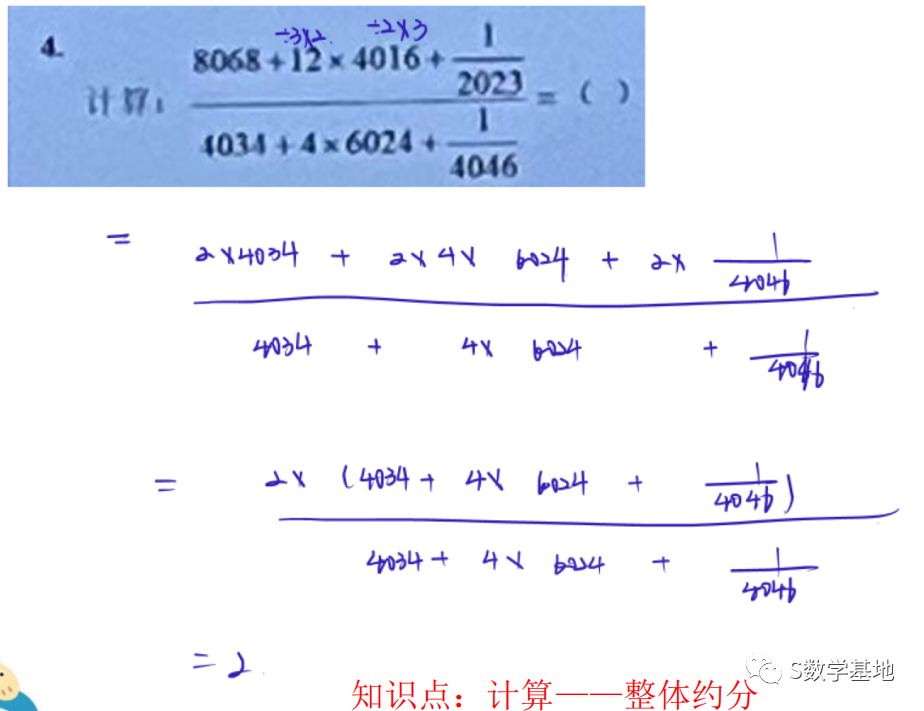 4.
÷3×2 ÷2×3
计算: (8068+12×4016+1/2023)/(4034+4×6024+1/4046) = ( )
= (2×4034 + 2×4× 6024 + 2× 1/4046)/(4034 + 4× 6024 + 1/4046)
= (2× (4034+ 4× 6024 + 1/4046))/(4034+ 4× 6024 + 1/4046)
=2
S数学基地
知识点：计算——整体约分